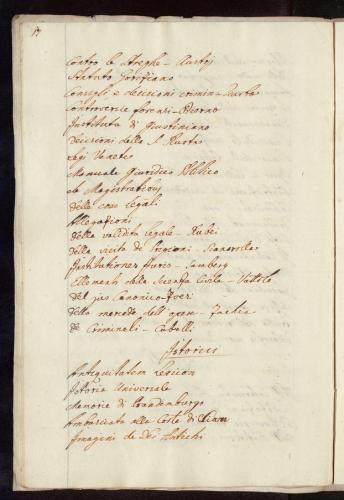 17
Contro le Streghe - Auctorj
Statuto Goritiano
Consegli e decisioni crimin - Ruota
Controversie forensi - Diorno
Instituta di Giustiniano
Decisioni della S. Ruota
Legi Venete
Manuale Giuridico Publico
de Magistratibus
delle cose legali
Allegationi
della validità legale - Rubei
della visita di Pregioni - Scanarolla
Institutiones Juris - Samberg
Ellementi della Scienza Civile - Vattolo
del jus Canonico
della mercede dell opere - Zachia
de Criminali - Caballi
Istorici
Antiquitatem
Istoria Universale
Memorie di Brandemburgo
Ambasciata alla Corte di Siam
Imagini de Dei Antichi